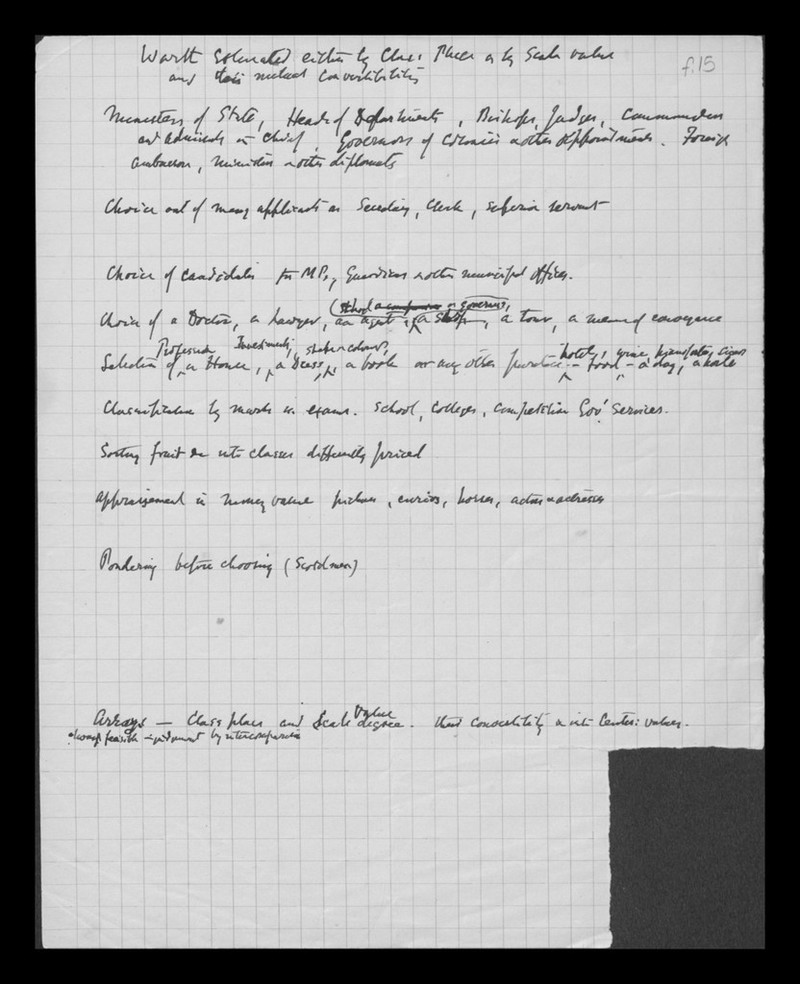 f.15
Worth Estimated either by Class Place or by Scale value
and their mutual convertibility
Ministers of State, Heads of Departments, Bishops, Judges, Commanders
and admirals in Chief, Governors of Colonies & other Appointments. Foreign
ambassrs, ministers & other diplomats
Choice out of many applicants as Secretary, Clerk, superior servant
Choice of candidates for MPs, Guardians & other municipal offices.
(school a or governess,
Choice of a Doctor, a Lawyer, an agent, a , a tour, a means of conveyance
Profession Investments, shape & colour, hotels, wine, cigars
Selection of a House, a Dress, a book or any other purchase - food - a dog, a horse
Classification by marks in exams. School, Colleges, Competition Gov' Services.
Sorting fruit &c into classes differently priced
appraisement in money value pictures, curios, horses, actors & actresses
Pondering before choosing (Scotchmen)
Value
Arrays — Class place and Scale degree. their convertibility & into Centes: values.
always feasible - judgment by intercomparison